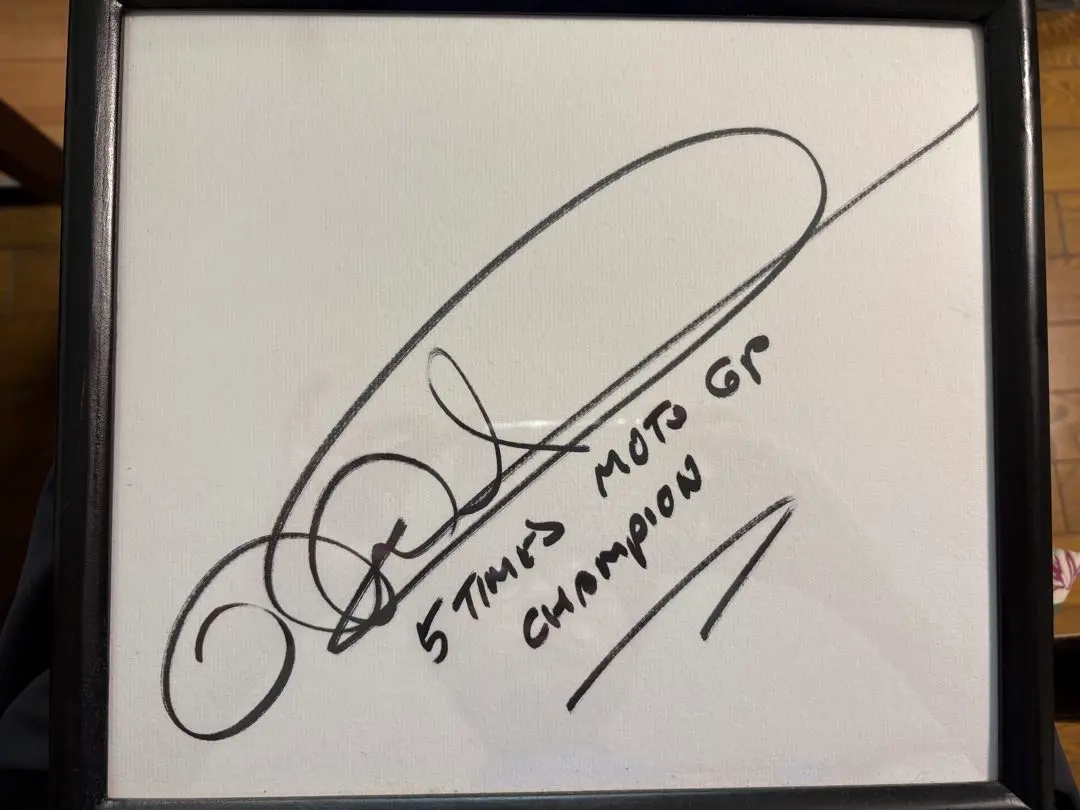 5 TIMES MOTO GP
CHAMPION